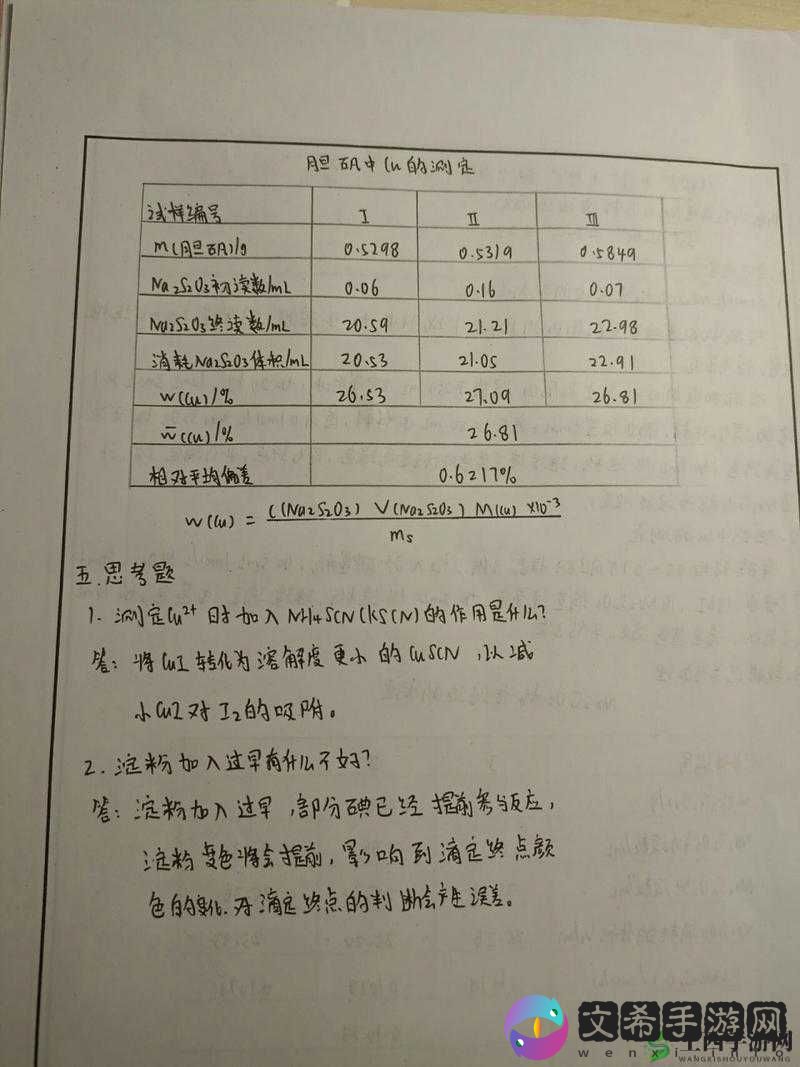 胆矾中Cu的测定
试样编号 I II III
m(胆矾)/g 0.5298 0.5319 0.5849
Na2S2O3初读数/mL 0.06 0.16 0.07
Na2S2O3终读数/mL 20.59 21.21 22.98
消耗Na2S2O3体积/mL 20.53 21.05 22.91
w(Cu)/% 26.53 27.09 26.81
w̄(Cu)/% 26.81
相对平均偏差 0.6217%
w(Cu) = C(Na2S2O3) V(Na2S2O3) M(Cu) ×10⁻³
ms
五.思考题
1. 测定Cu²⁺时加入NH4SCN(KSCN)的作用是什么?
答: 将CuI转化为溶解度更小的CuSCN,以减
小CuI对I2的吸附。
2. 淀粉加入过早有什么不好?
答: 淀粉加入过早,部分碘已经提前参与反应,
淀粉变色将会提前,影响到滴定终点颜
色的变化.对滴定终点的判断会产生误差。
文希手游网
wenxi
手游网
WANGKISHOUYOUWANG